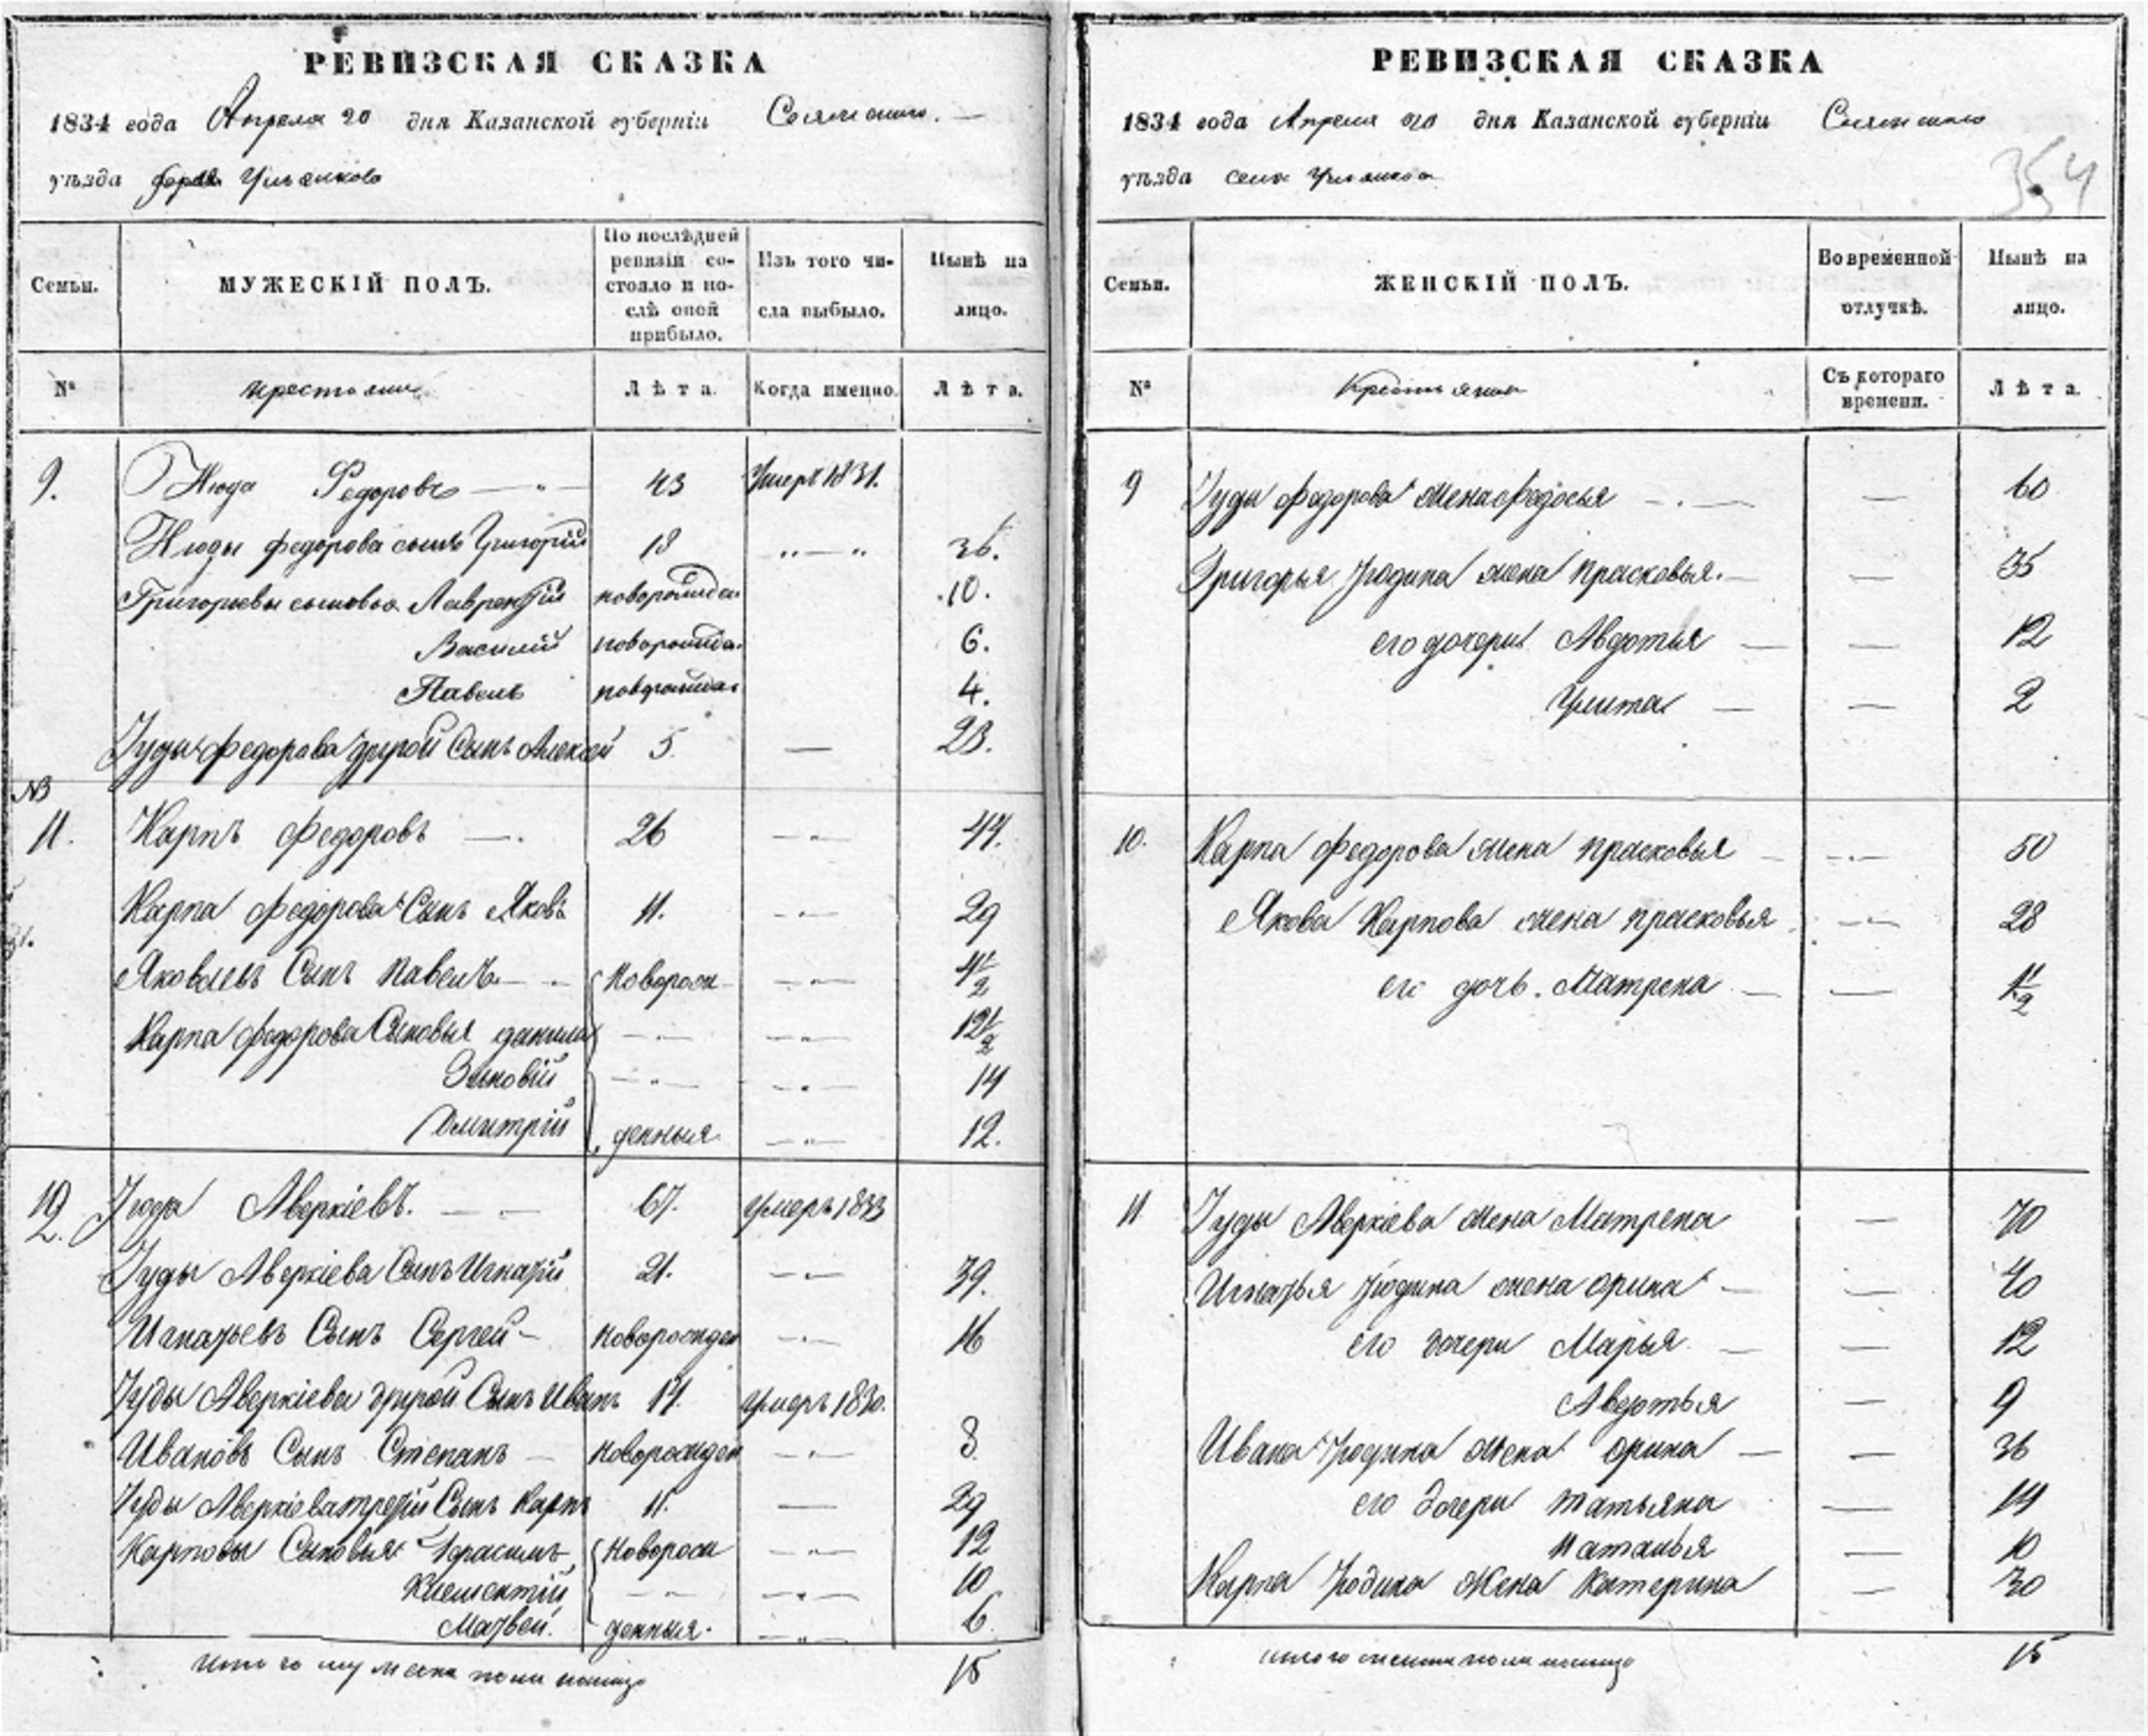 РЕВИЗСКАЯ СКАЗКА
1834 года Апреля 20 дня Казанской губерніи
уѣзда
Семьи.
МУЖЕСКІЙ ПОЛЪ.
По послѣдней ревизіи со-
стояло и по-
слѣ оной
прибыло.
Изъ того чи-
сла выбыло.
Нынѣ на
лицо.
№
Лѣта.
Когда именно.
Лѣта.
9. Июда Федоровъ 43 Умеръ 1831.
Июды федорова сынъ Григорій 18 36.
Григорьевы сыновья Лаврентій новорожден 10.
Василій новорожден 6.
Павелъ новорожден 4.
Іуды федорова другой Сынъ Алексей 5 — 23.
11. Карпъ федоровъ — 26 44.
Карпа федорова Сынъ Яковъ 11. 29
Яковлевъ Сынъ павелъ Новорож 4 1/2
Карпа федорова Сыновья данила 12 1/2
Зиновій 14
Дмитрій денныя 12.
12. Іюда Аверкіевъ. 67. умеръ 1833
Іуды Аверкіева Сынъ Игнатій 21. 39.
Игнатьевъ Сынъ Сергей — Новорожден 16
Іуды Аверкіева другой Сынъ Иванъ 17. умеръ 1830.
Ивановъ Сынъ Степанъ — Новорожден 8
Іуды Аверкіева третій Сынъ Карпъ 11. — 29
Карповы Сыновья Герасимъ Новорож 12
Климентій 10
Матвей. денныя. 6
Итого мужеска пола налицо 15
РЕВИЗСКАЯ СКАЗКА
1834 года Апреля 20 дня Казанской губерніи
уѣзда села
354
Семьи.
ЖЕНСКІЙ ПОЛЪ.
Во временной
отлучкѣ.
Нынѣ на
лицо.
№
Съ котораго
времени.
Лѣта.
9 Іуды федорова жена федосья — 60
Григорья Іюдина жена прасковья. — 35
его дочери Авдотья — 12
Улита — 2
10. Карпа федорова жена прасковья 50
Якова Карпова жена прасковья 28
его дочь. Матрена — 1 1/2
11 Іуды Аверкіева жена Матрена — 70
Игнатья Іюдина жена орина — 40
его дочери Марья — 12
Авдотья — 9
Ивана Іюдина жена орина — 36
его дочери татьяна — 14
Наталья — 10
Карпа Іюдина жена Катерина — 30
итого женска пола налицо 15